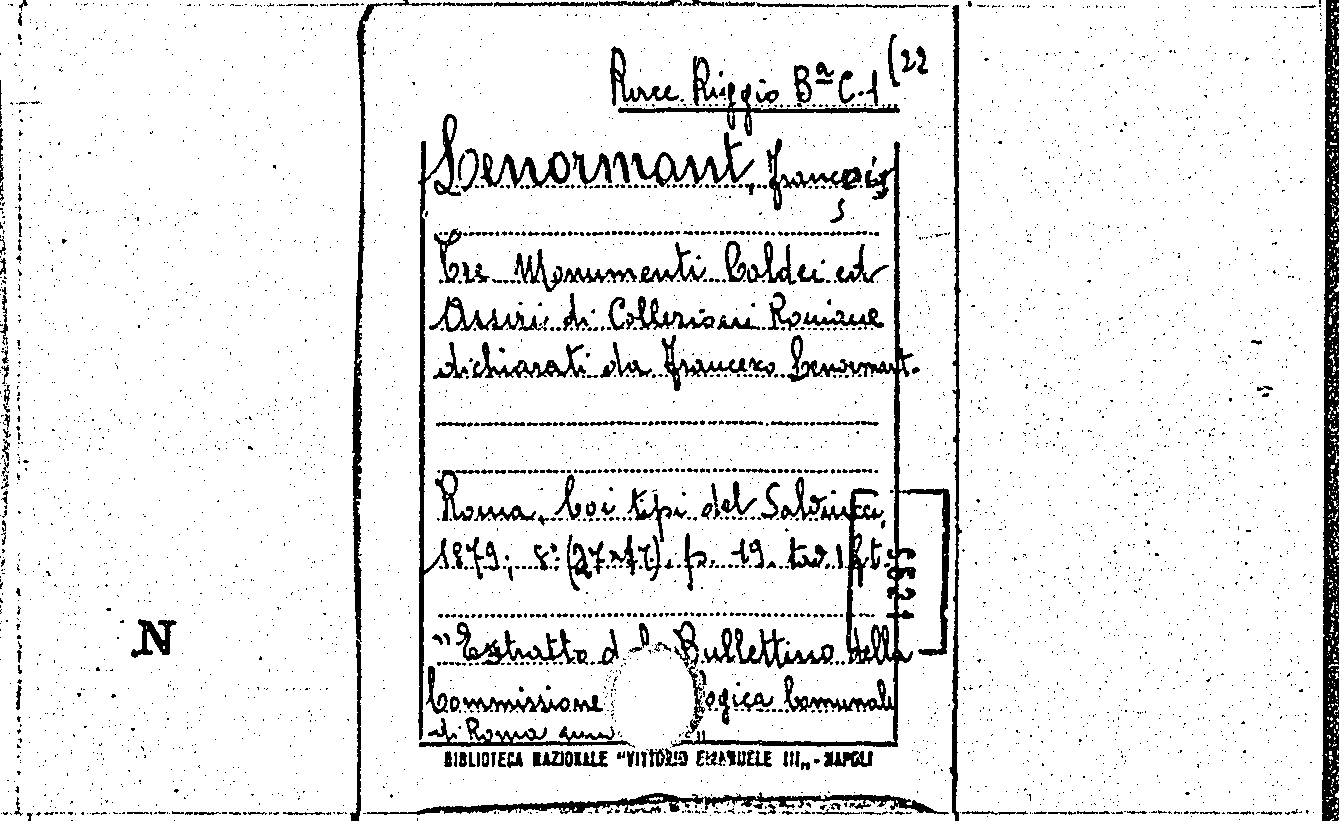 Race. Riggio Bª C.1 (22
Lenormant, François
Tre Monumenti Caldei ed
Assiri di Collezioni Romane
dichiarati da Francesco Lenormant.
Roma, Coi tipi del Salviucci,
1879; 8° (27x17). p. 19. tav. 1 f.t.
"Estratto d Bullettino della
Commissione ologica Comunale
di Roma anno "
N
BIBLIOTECA NAZIONALE "VITTORIO EMANUELE III„ - NAPOLI